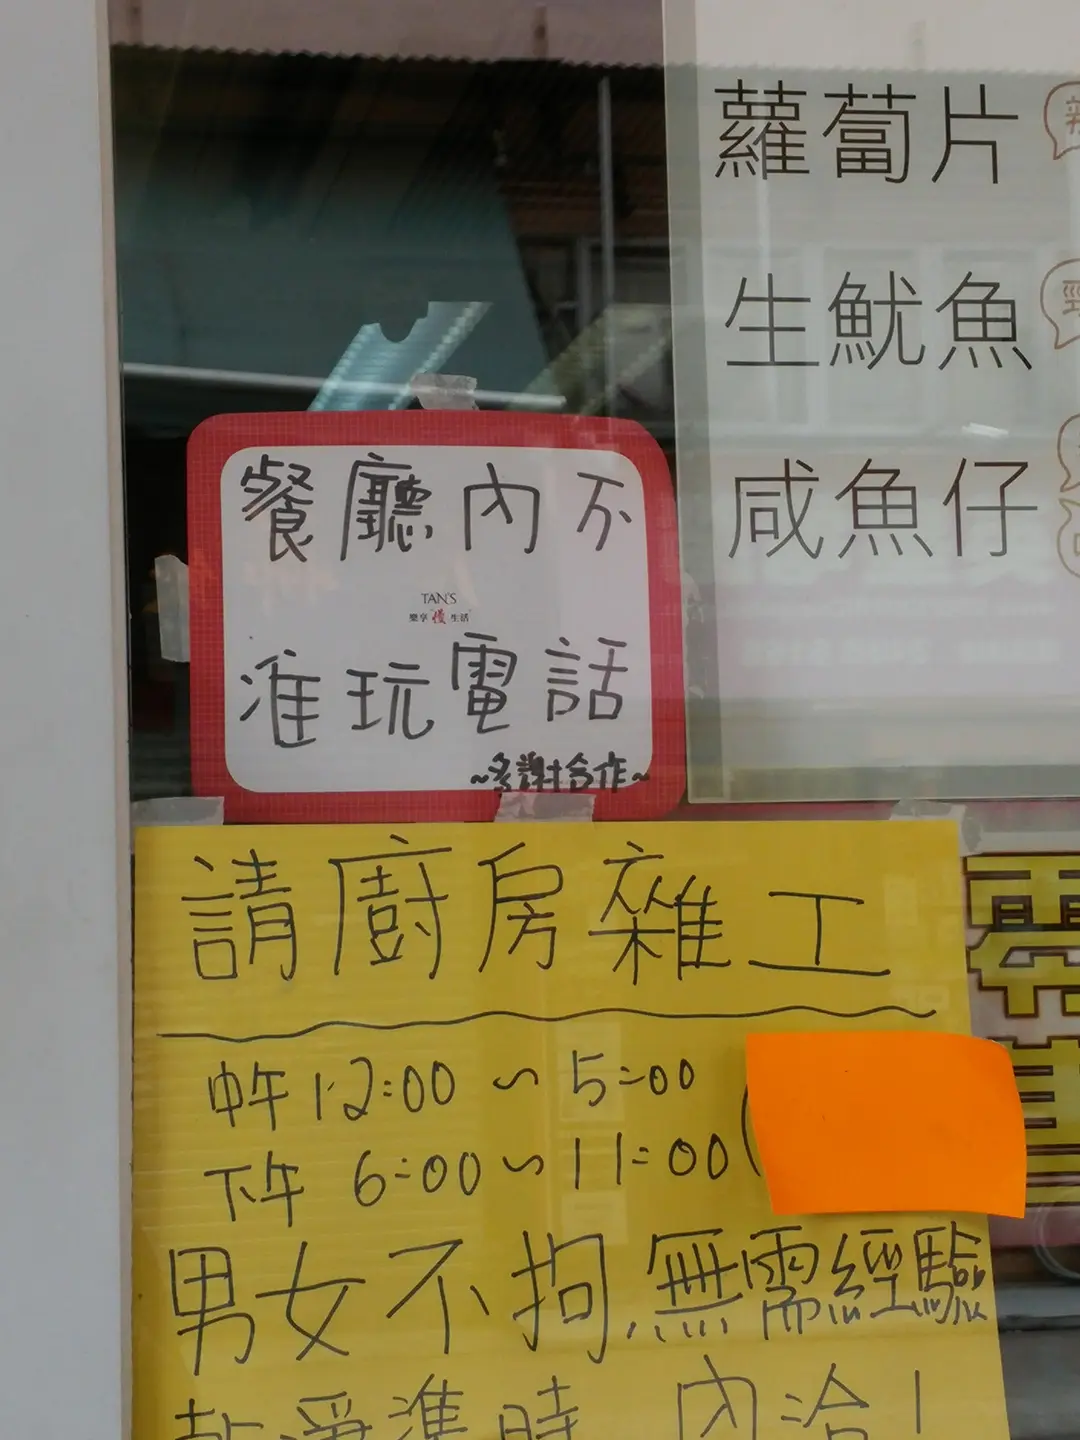 蘿蔔片
生魷魚
咸魚仔
餐廳內不
TAN'S
樂享慢生活
准玩電話
~多謝合作~
請廚房雜工
中午12:00~5:00
下午 6:00~11:00
男女不拘.無需經驗
乾淨準時 內洽!